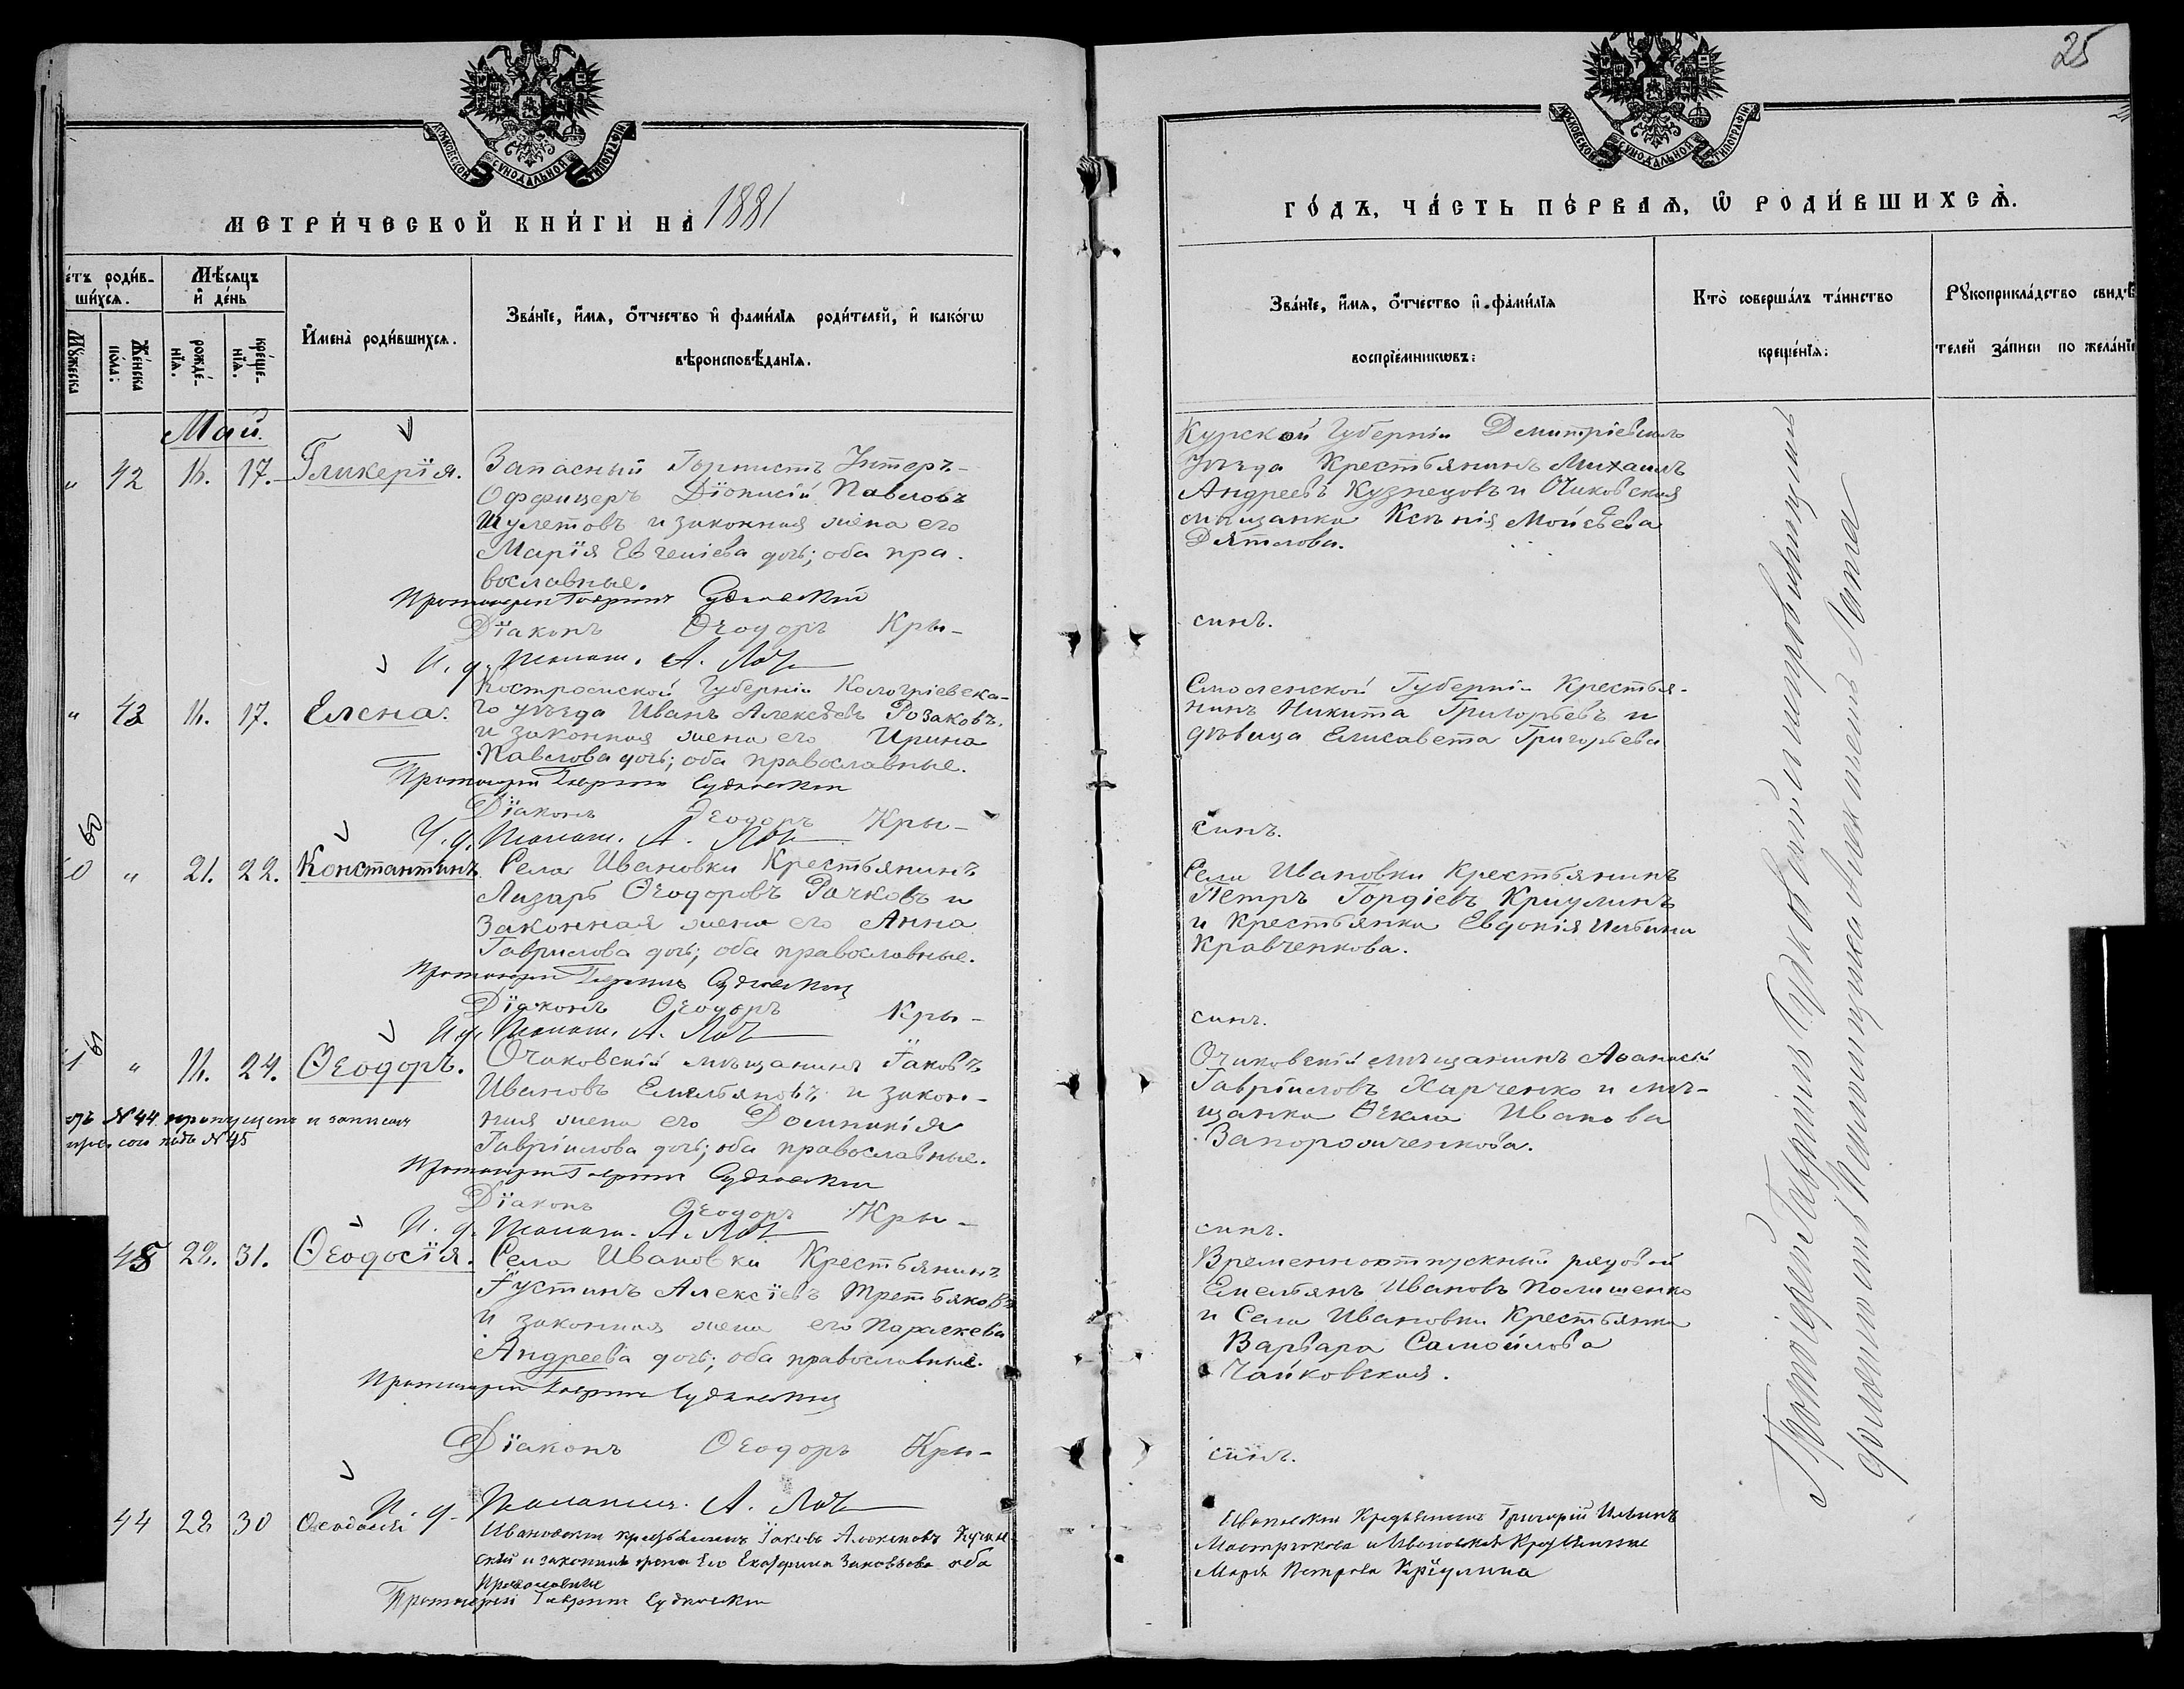 25
МОСКОВСКОЙ СѴНОДАЛЬНОЙ ТИПОГРАФІИ
МОСКОВСКОЙ СѴНОДАЛЬНОЙ ТИПОГРАФІИ
МЕТРИ́ЧЕСКОЙ КНИ́ГИ НА 1881
ГО́ДЪ, ЧА́СТЬ ПЕ́РВАѦ, Ѡ РОДИ́ВШИХСѦ.
е́тъ роди́в-
ши́хся.
Му́жеска
Же́нска
по́ла:
Мѣ́сяцъ
и де́нь
рожде́-
нія.
креще́-
нія.
Имена̀ роди́вшихся.
Зва́ніе, и́мя, о́тчество и фами́лія роди́телей, и како́гѡ
вѣроисповѣ́данія.
Зва́ніе, и́мя, о́тчество и фами́лія
воспріе́мникѡвъ:
Кто̀ соверша́лъ та́инство
креще́нія:
Рукоприкла́дство свидѣ́
телей за́писи по жела́нію
Май.
" 42 16. 17. Гликерія.
Запасный Горнистъ Унтеръ-
Оффицеръ Діонисій Павловъ
Шулетовъ и законная жена его
Марія Евгеніева дочь; оба пра-
вославные.
Протоіерей Гавріилъ Судковскій
Діаконъ Ѳеодоръ Кры-
И. д. Псалом. А. Лоч
Курской Губерніи Демитріевскаго
Уѣзда Крестьянинъ Михаилъ
Андреевъ Кузнецовъ и Очаковская
мѣщанка Ксенія Мойсѣева
Дятлова.
синъ.
" 43 11. 17. Елена.
Костромской Губерніи Кологріевска-
го уѣзда Иванъ Алексѣевъ Розаковъ.
и законная жена его Ирина
Павлова дочь; оба православные.
Протоіерей Гавріилъ Судковскій
Діаконъ Ѳеодоръ Кры-
И. д. Псалом. А. Лоч
Смоленской Губерніи Крестья-
нинъ Никита Григорьевъ и
дѣвица Елисавета Григорьева
синъ.
60
0 " 21. 22. Константинъ
Села Ивановки Крестьянинъ
Лазарь Ѳеодоровъ Рачковъ и
Законная жена его Анна
Гаврилова дочь; оба православные.
Протоіерей Гавріилъ Судковскій
Діаконъ Ѳеодоръ Кры-
И. д. Псалом. А. Лоч
Села Ивановки Крестьянинъ
Петръ Гордіевъ Криулинъ
и Крестьянка Евдокія Ильина
Кравченкова.
синъ.
61
1 " 11. 24. Ѳеодоръ.
Очаковскій мѣщанинъ Іаковъ
Ивановъ Емельяновъ и закон-
ная жена его Домникія
Гавріилова дочь; оба православные.
№ 44 пропущенъ и записанъ
подъ № 45
Протоіерей Гавріилъ Судковскій
Діаконъ Ѳеодоръ Кры-
И. д. Псалом. А. Лоч
Очаковскій мѣщанинъ Аѳанасій
Гавріиловъ Харченко и мѣ-
щанка Ѳекла Иванова
Запорожченкова.
синъ.
45 28. 31. Ѳеодосія.
Села Ивановки Крестьянинъ
Іустинъ Алексіевъ Третьяковъ
и законная жена его Параскева
Андреева дочь; оба православные.
Протоіерей Гавріилъ Судковскій
Діаконъ Ѳеодоръ Кры-
И. д. Псаломщ. А. Лоч
Временноотпускный рядовой
Емельянъ Ивановъ Полишенко
и Села Ивановки Крестьянка
Варвара Самойлова
Чайковская.
синъ.
44 28 30 Ѳеодосій
Ивановскій крестьянинъ Іаковъ
и законная жена его Екатерина Яковлева оба
православные
Протоіерей Гавріилъ Судковскій
Ивановскій Крестьянинъ Григорій Ильинъ
и Ивановская Крестьянка
Марія Петрова Кріулина
Протоіерей Гавріилъ Судковскій и
Псаломщика Алексѣй Лоча